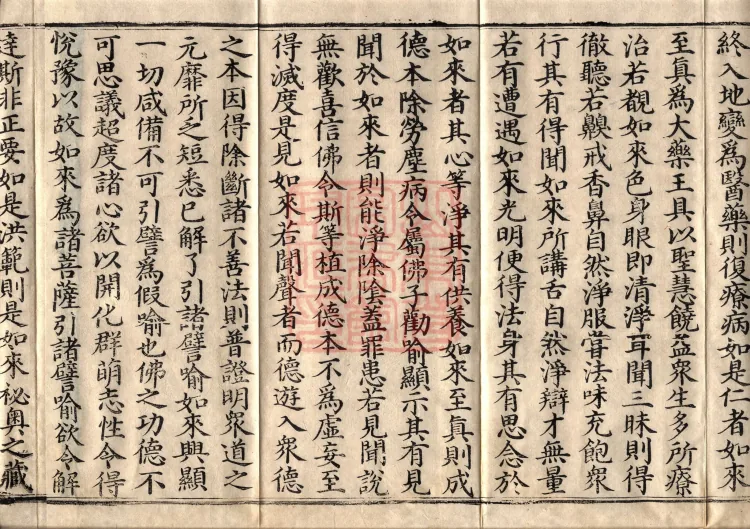 終入地變為醫藥則復療病如是仁者如來
至真為大藥王具以聖慧饒益眾生多所療
治若覩如來色身眼即清淨耳聞三昧則得
徹聽若齅戒香鼻自然淨服甞法味充飽眾
行其有得聞如來所講舌自然淨辯才無量
若有遭遇如來光明便得法身其有思念於
如來者其心等淨其有供養如來至真則成
德本除勞塵病令屬佛子勸喻顯示其有見
聞於如來者則能淨除陰蓋罪患若見聞說
無歡喜信佛令斯等植成德本不為虛妄至
得滅度是見如來若聞聲者而德遊入眾德
之本因得除斷諸不善法則普證明眾道之
元靡所乏短悉已解了引諸譬喻如來興顯
一切咸備不可引譬為假喻也佛之功德不
可思議超度諸心欲以開化群萌志性令得
悅豫以故如來為諸菩薩引諸譬喻欲令解
達斯非正要如是洪範則是如來祕奧之藏